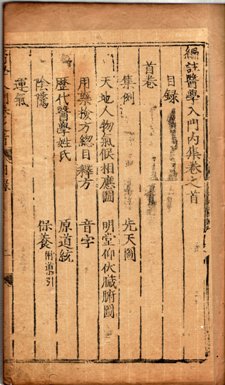 編註醫學入門內集卷之首
目錄
首卷
集例 先天圖
天地人物氣候相應圖 明堂仰伏臟腑圖
用藥檢方總目釋方 音字
歷代醫學姓氏 原道統
陰隲 保養附導引
運氣